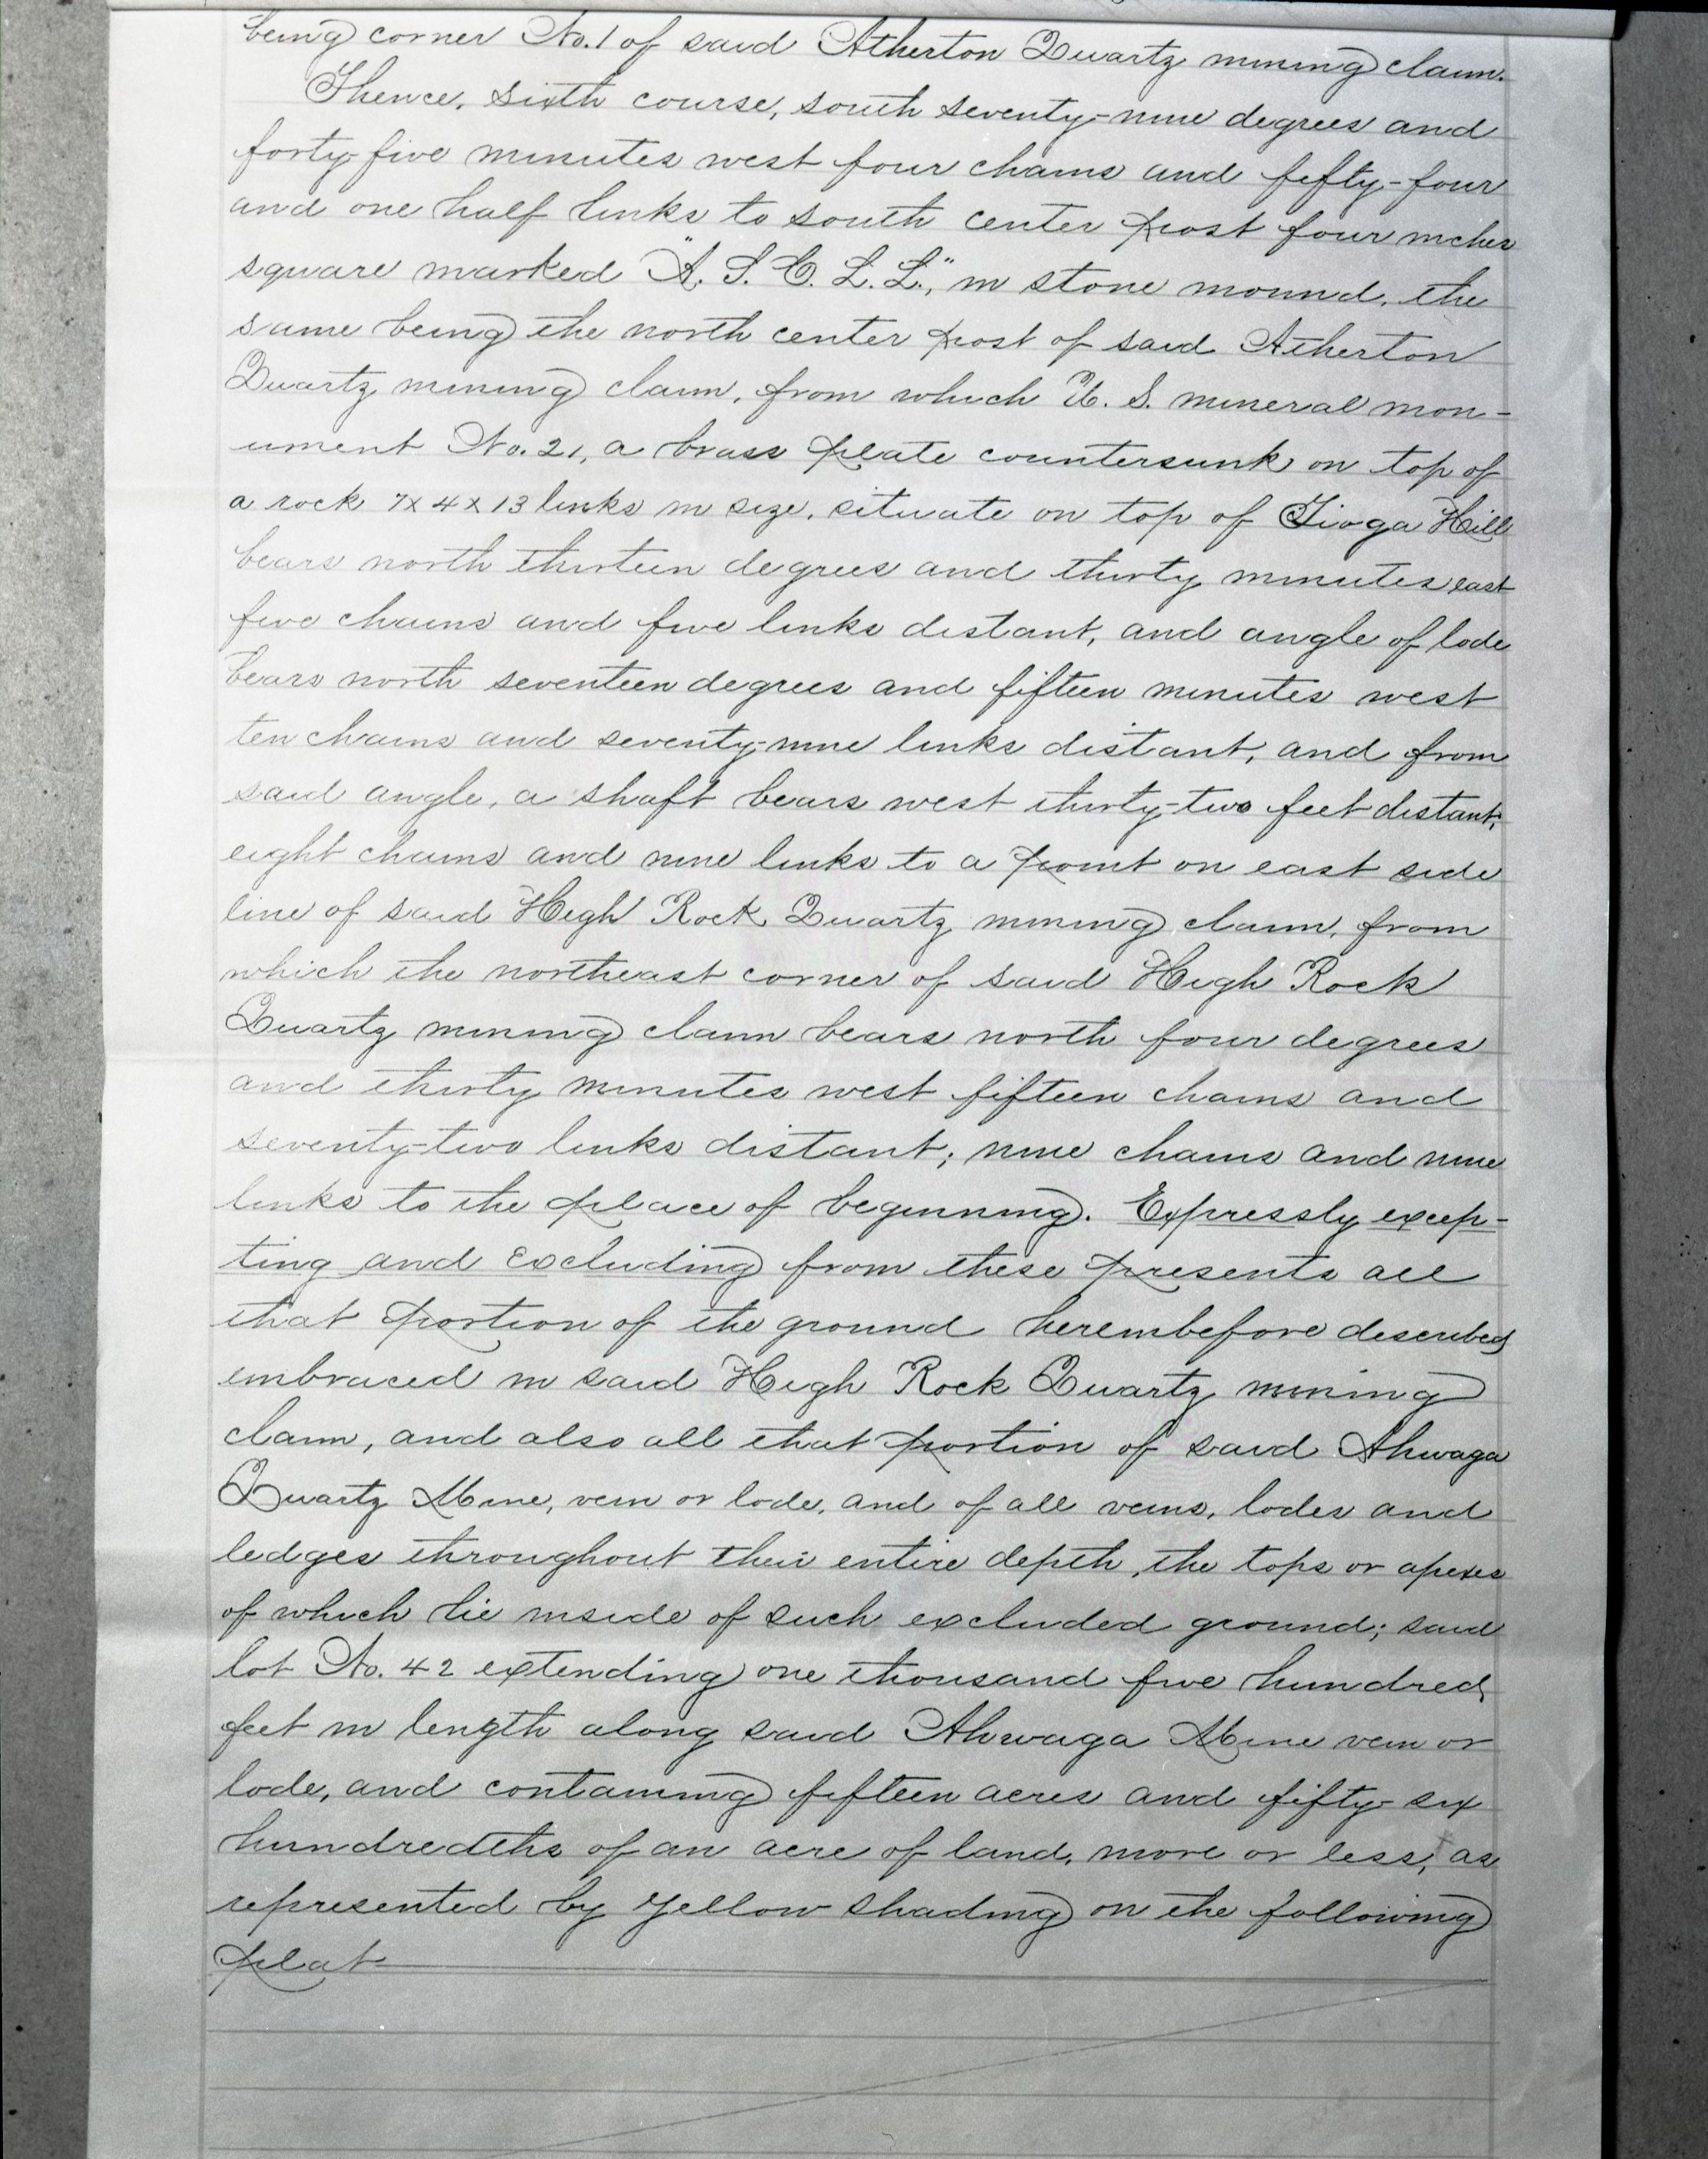 being corner No. 1 of said Atherton Quartz mining claim.
Thence, sixth course, south seventy-nine degrees and
forty-five minutes west four chains and fifty-four
and one half links to south center post four inches
square marked "A. S. C. L. L.", in stone mound, the
same being the north center post of said Atherton
Quartz mining claim, from which U. S. mineral mon-
ument No. 21, a brass plate countersunk on top of
a rock 7 x 4 x 13 links in size, situate on top of Tioga Hill
bears north thirteen degrees and thirty minutes east
five chains and five links distant, and angle of lode
bears north seventeen degrees and fifteen minutes west
ten chains and seventy-nine links distant, and from
said angle, a shaft bears west thirty-two feet distant;
eight chains and nine links to a point on east side
line of said High Rock Quartz mining claim, from
which the northeast corner of said High Rock
Quartz mining claim bears north four degrees
and thirty minutes west fifteen chains and
seventy-two links distant; nine chains and nine
links to the place of beginning. Expressly excep-
ting and excluding from these presents all
that portion of the ground hereinbefore described
embraced in said High Rock Quartz mining
claim, and also all that portion of said Ahwaga
Quartz Mine, vein or lode, and of all veins, lodes and
ledges throughout their entire depth, the tops or apexes
of which lie inside of such excluded ground; said
lot No. 42 extending one thousand five hundred
feet in length along said Ahwaga Mine vein or
lode, and containing fifteen acres and fifty-six
hundredths of an acre of land, more or less, as
represented by yellow shading on the following
plat